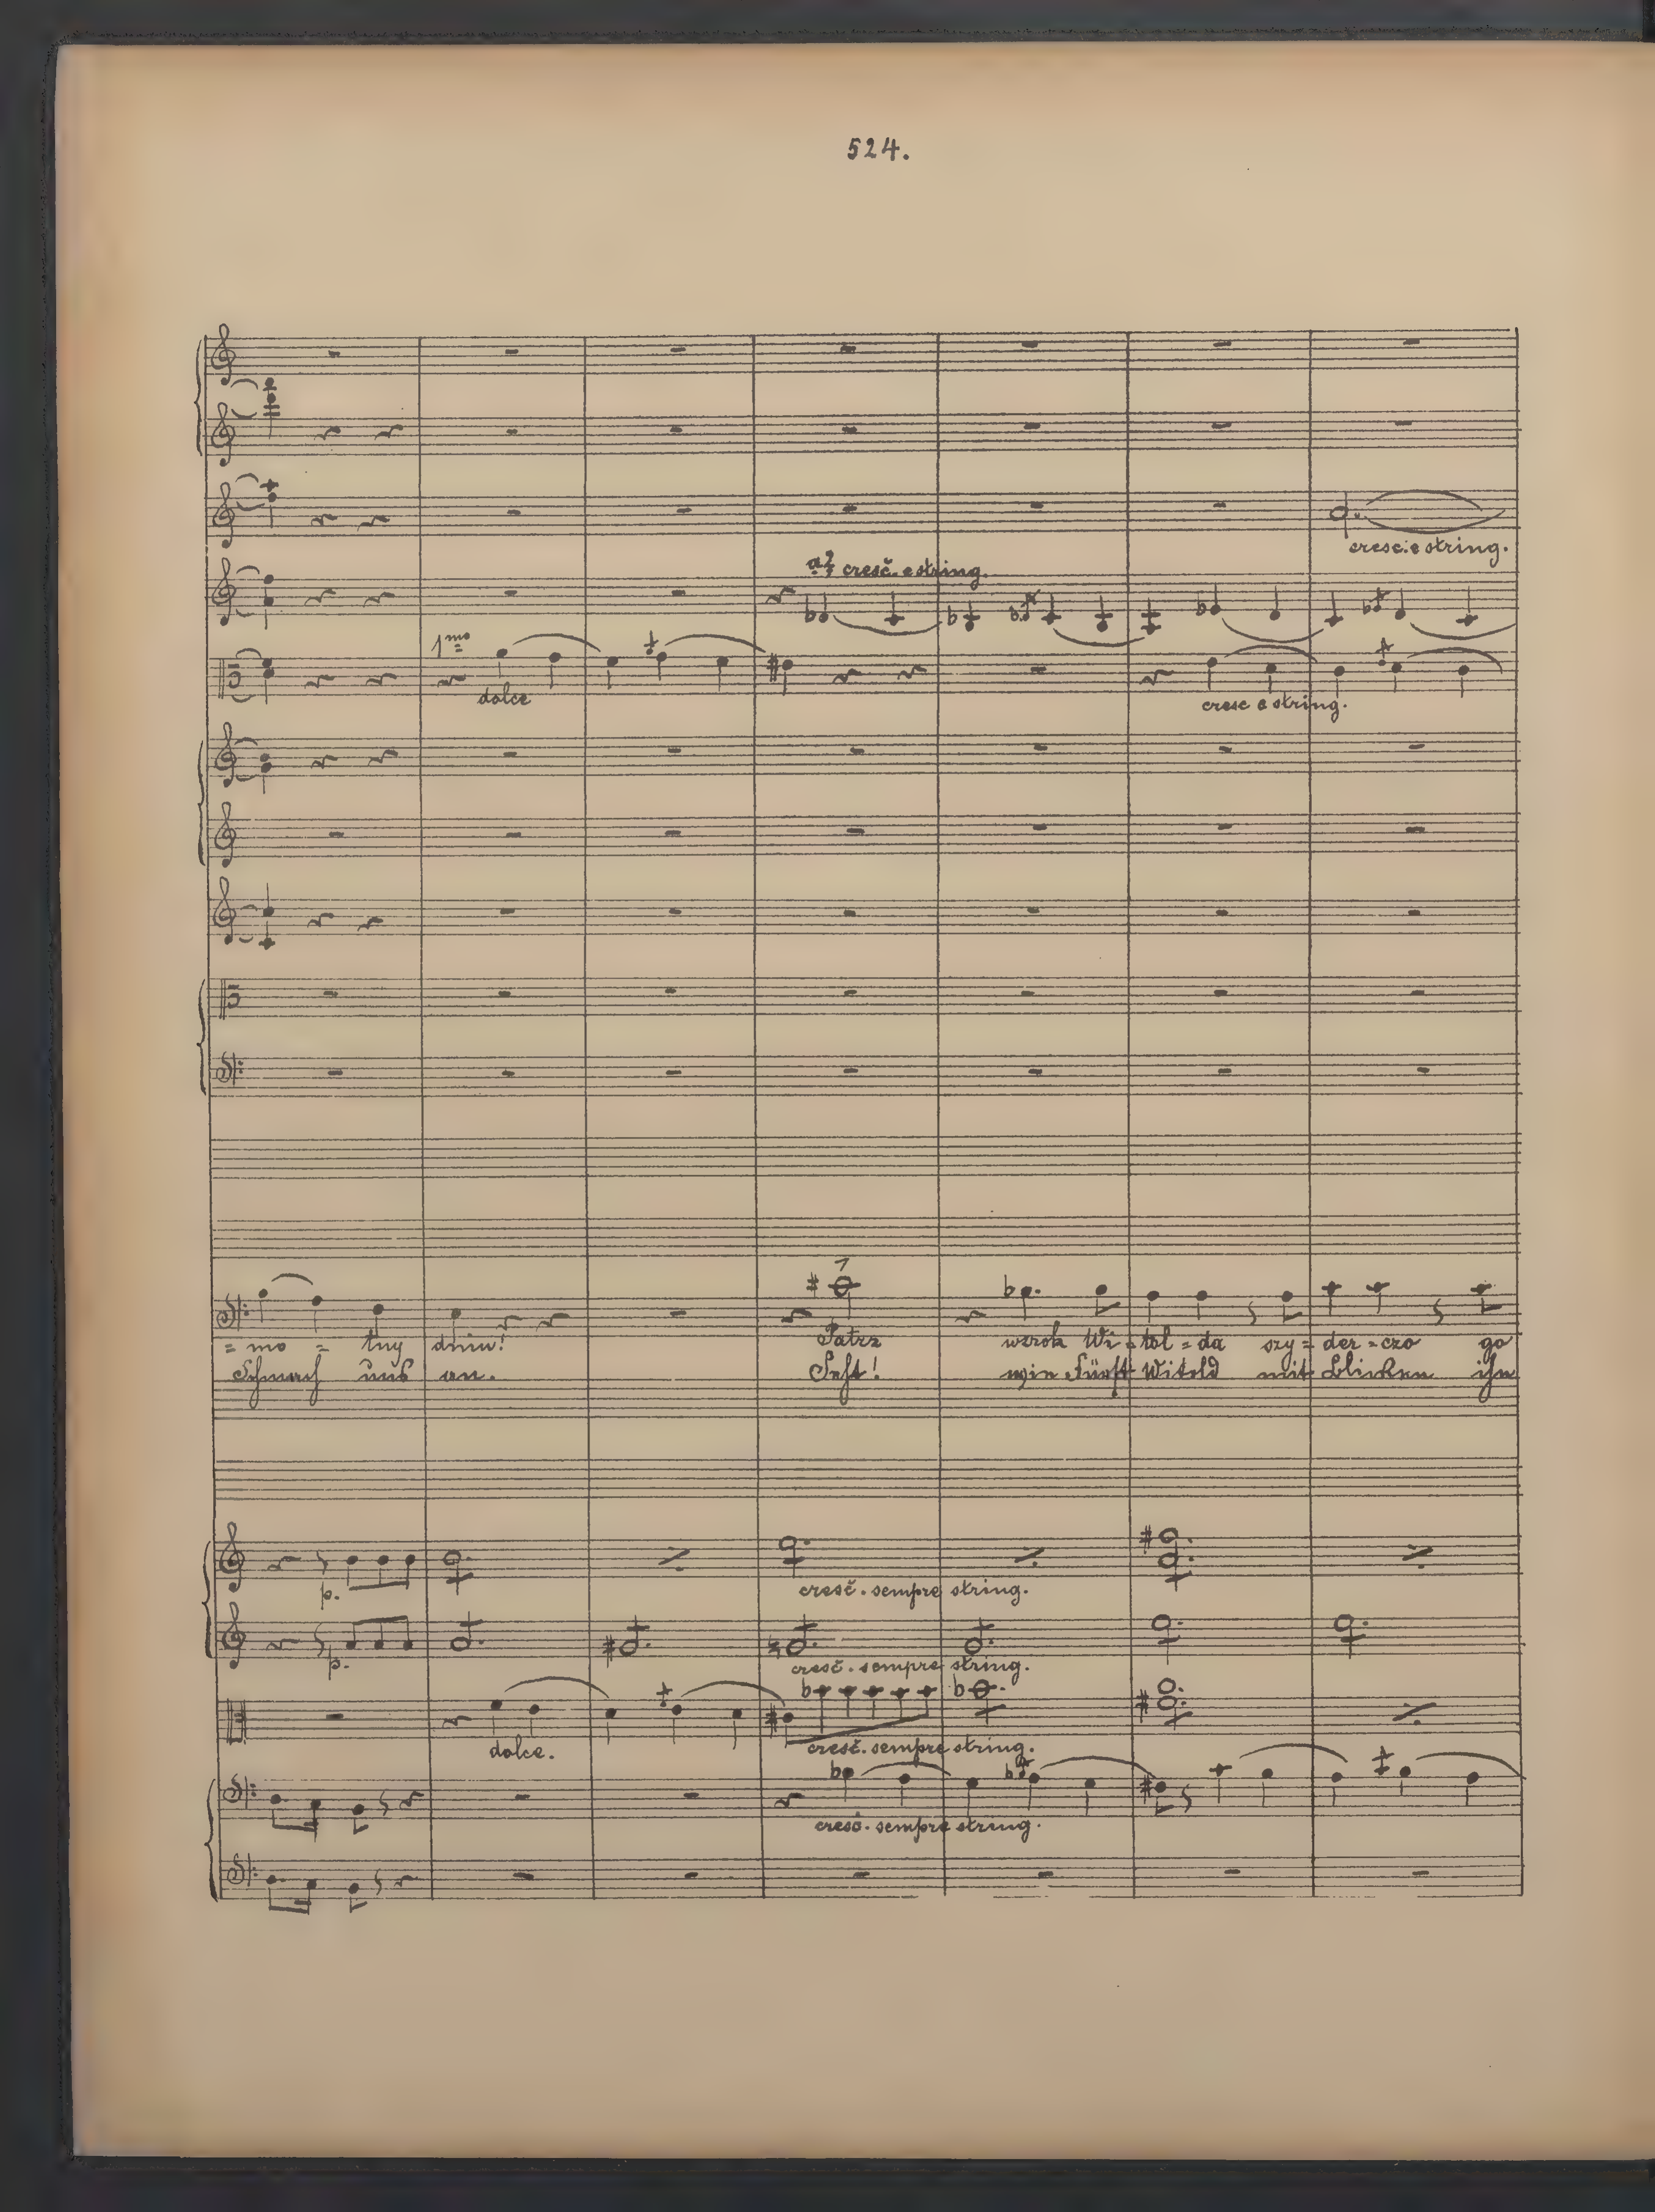 524.
cresc. e string.
a2 cresc. e string.
1mo
dolce
cresc e string.
= mo = tny dniu! Patrz wzrok Wi = tol = da szy = der = czo go
Schmach uns an. Seht! wie Fürst Witold mit Blicken ihn
p. cresc. sempre string.
p. cresc. sempre string.
dolce. cresc. sempre string.
cresc. sempre string.